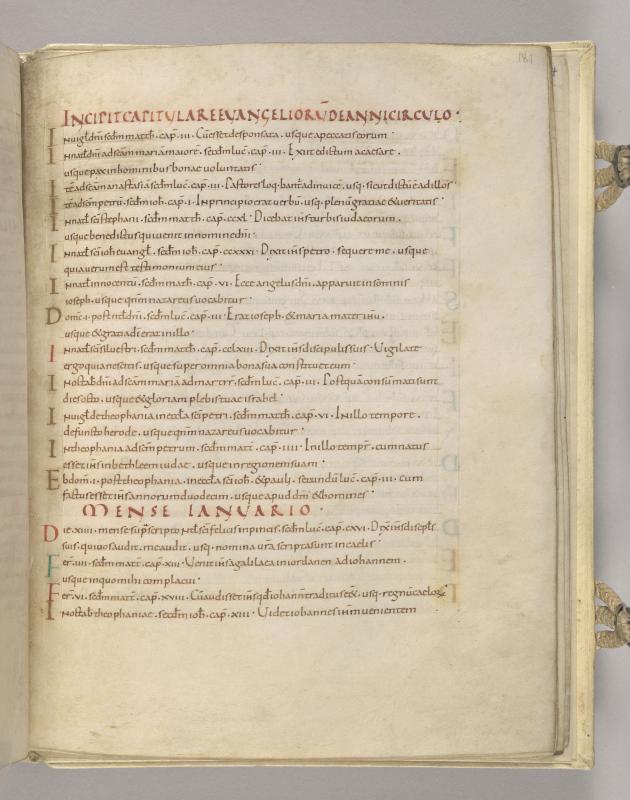 181
INCIPIT CAPITULARE EVANGELIORŪ DE ANNI CIRCULO ·
In uigl dñi secdm matth · cap · III · Cū esset desponsata · usque a peccatis eorum ·
In nat dñi ad scam mariā maiorē · secdm luc · cap · III · Exiit edictum a caesare ·
usque pax in hominibus bonae voluntatis ·
Itē ad scam anastasiā secdm luc · cap · III · Pastores loq̄bant̄ ad inuicē · usq · sicut dictū ē ad illos
Itē ad scm petrū · secdm ioh · cap · I · In principio erat uerbū · usq · plenū gratiae & ueritatis ·
In nat sci stephani · secdm matth · cap · ccxl · Dicebat ihs turbis iudaeorum ·
usque benedictus qui uenit in nomine dñi ·
In nat sci ioh euangl · secdm ioh · cap · ccxxxi · Dixit ihs petro · sequere me · usque
quia uerum est testimonium eius ·
In nat innocentū · secdm matth · cap · VI · Ecce angelus dñi · apparuit in somnis
ioseph · usque qnm nazareus uocabitur ·
Dome · I · post nat dñi · secdm luc · cap · III · Erat ioseph · & maria mater ihu ·
usque & gratia dei erat in illo ·
In nat sci siluestri · secdm matth · cap · cclxiii · Dixit ihs discipulis suis · Uigilate
ergo quia nescitis · usque super omnia bona sua constituet eum ·
In octab dñi ad scam mariā ad martyr̄ · secdm luc · cap · III · Postquā consummati sunt
dies octo · usque & gloriam plebis tuae israhel ·
In uigl de theophania in eccla sci petri · secdm math · cap · VI · In illo tempore ·
defuncto herode · usque qnm nazareus uocabitur ·
In theophania ad scm petrum · secdm matt · cap · IIII · In illo tempr̄ · cum natus
esset ihs in bethleem iudae · usque in regionem suam ·
Ebdom · I · post theophania · in eccla sci ioh · & pauli · secundū luc · cap · III · cum
factus esset ihs annorum duodecim · usque apud dm̄ & homines ·
MENSE IANUARIO ·
Die · XIIII · mense sup̄scripto nat sci felicis in pincis · secdm luc · cap · CXVI · Dix̄ ihs discipls
suis · qui uos audit · me audit · usq · nomina ura scripta sunt in caelis
Fer · IIII · secdm matt · cap · XIII · Uenit ihs a galilaea in iordanen ad iohannem ·
usque in quo mihi complacui ·
Fer · VI · secdm matt · cap · XVIII · Cū audisset ihs qd iohann̄ traditus ēe& · usq · regnū caeloꝝ
In octab theophaniae · secdm ioh · cap · XIII · Uidet iohannes ihm uenientem